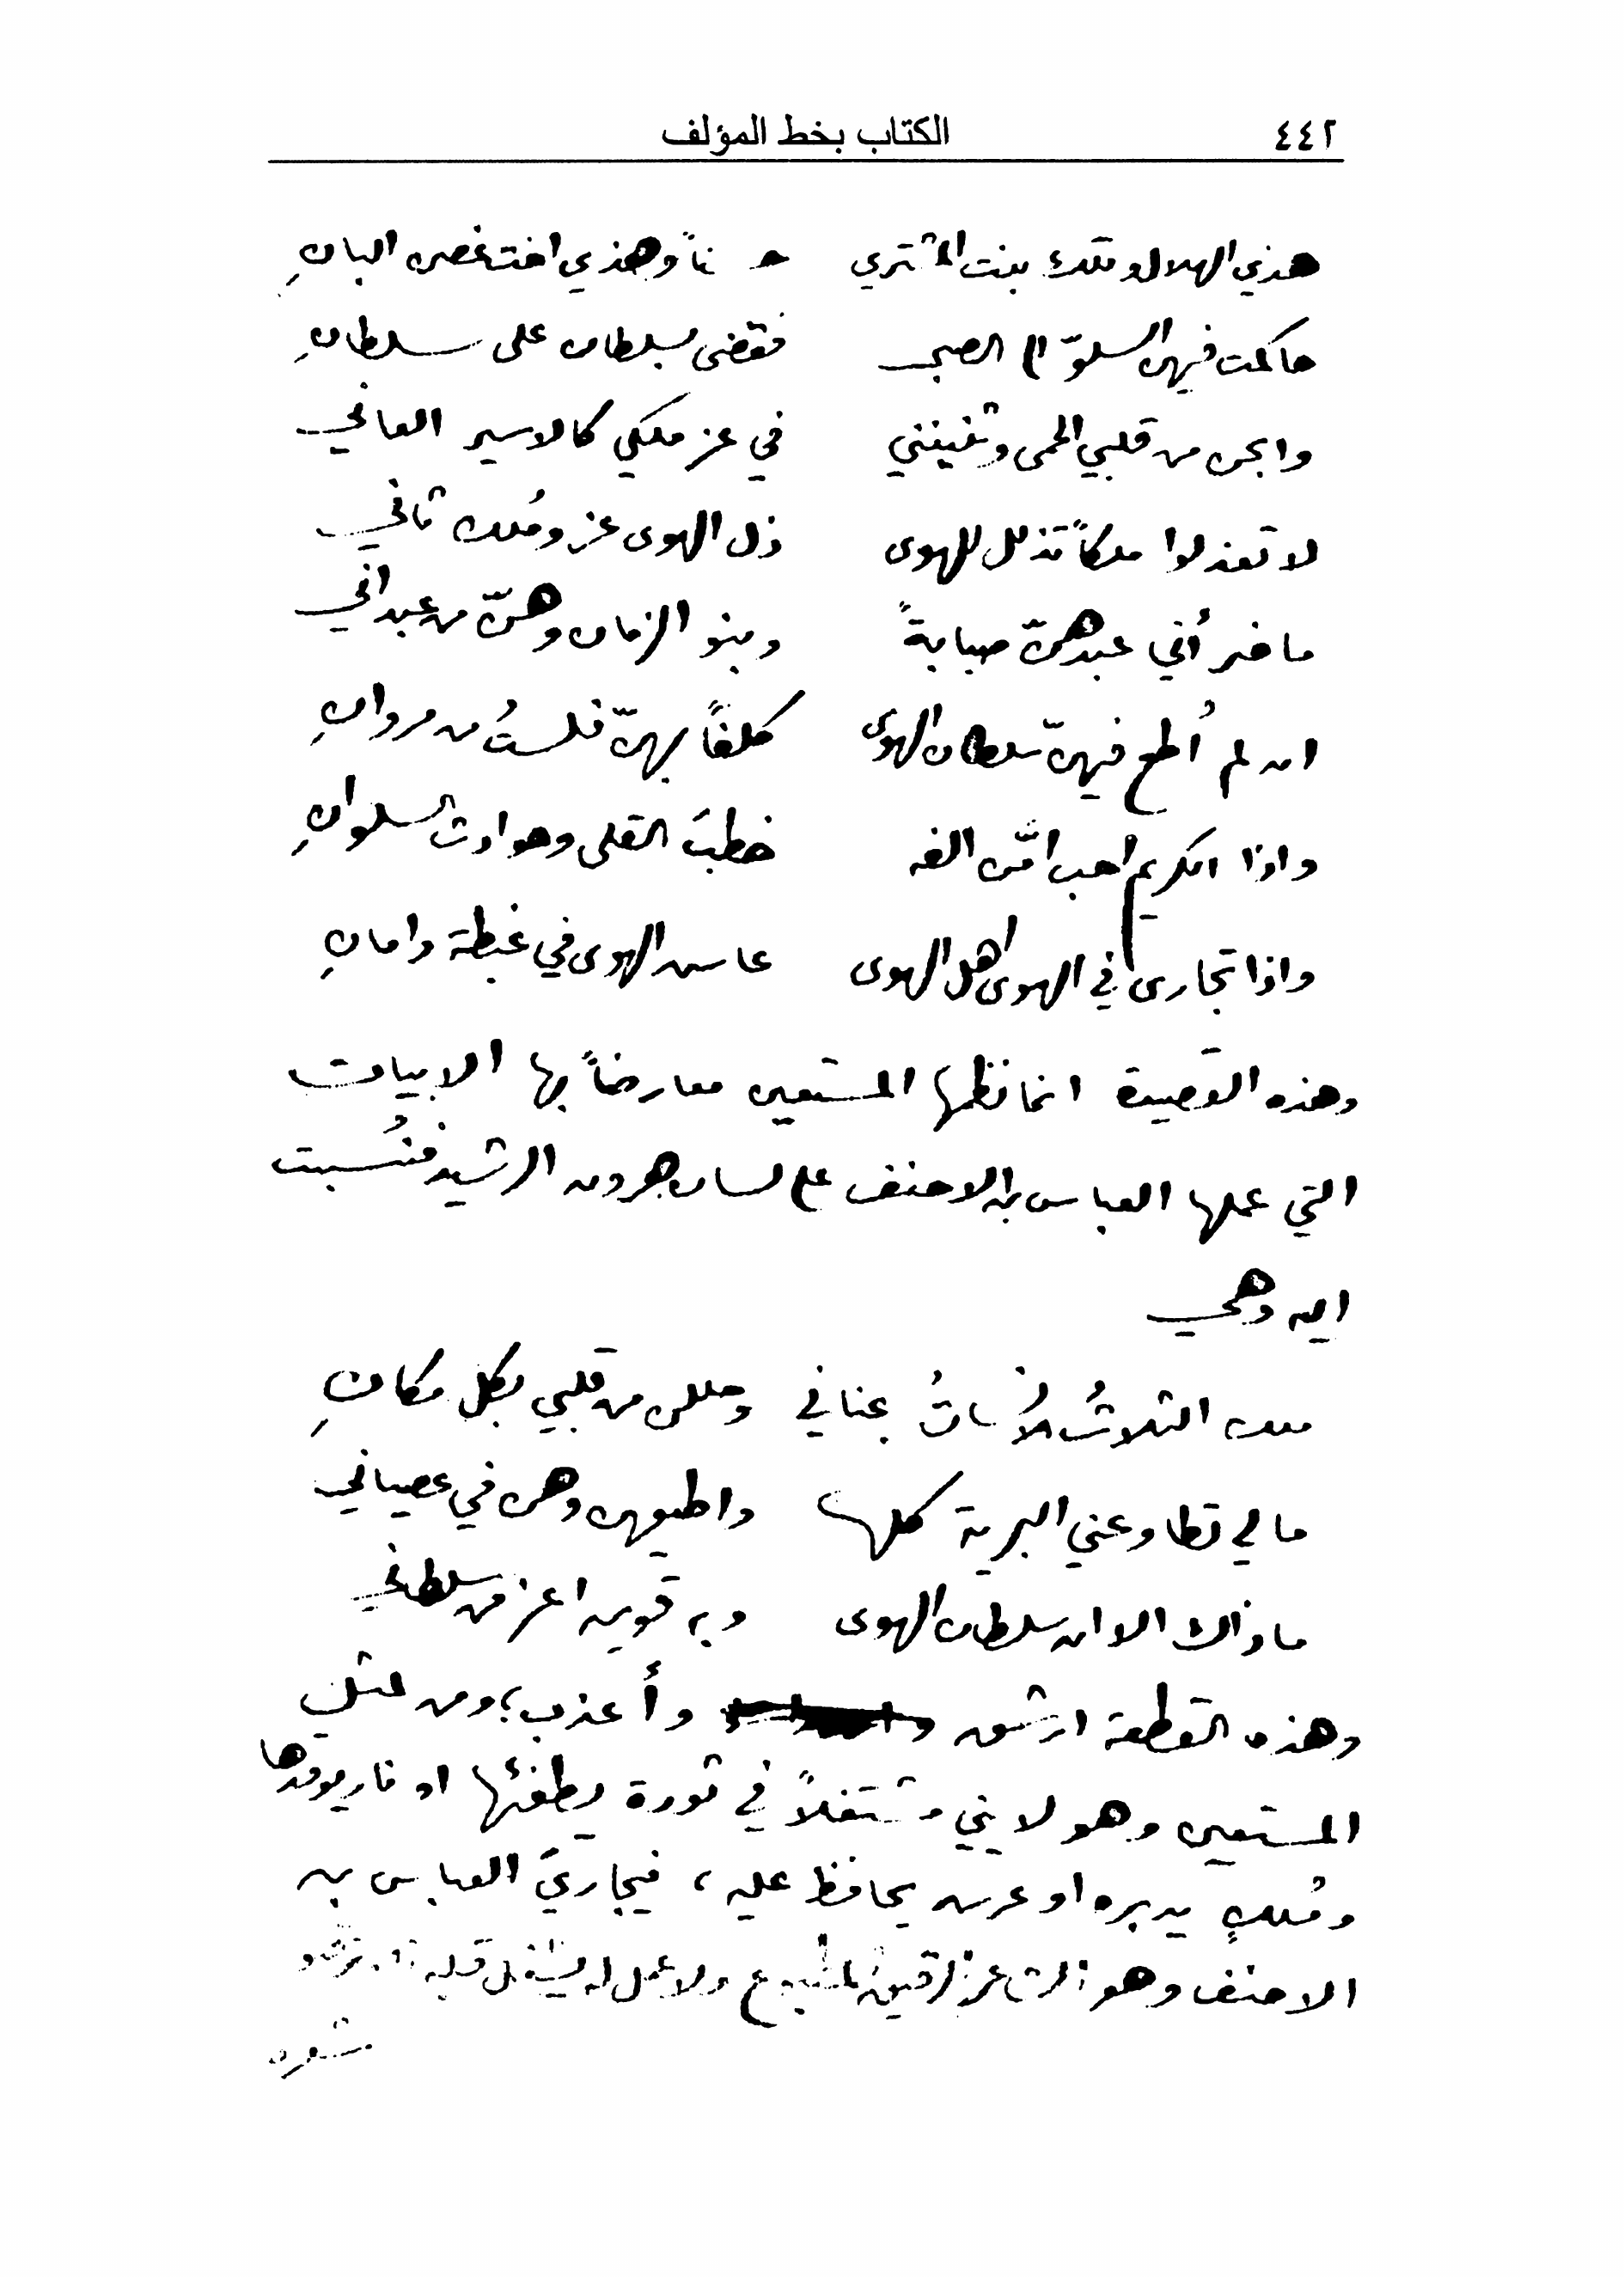 ٤٤٢ الكتاب بخط المؤلف
هذي الهلال وتلك بنت المشتري حسناً وهذي اخت غصن البانِ
حاكمت فيهن السلوّ الى الصبى فقضى بسلطان على سلطانِ
وابحن من قلبي الحمى وثنينني في عز ملكي كالاسير العاني
لا تعذلوا ملكاً تذلل للهوى ذل الهوى عز ومُلك ثاني
ما ضر أني عبدهنّ صبابةً وبنو الزمان وهنّ من عبداني
ان لم أُطع فيهنّ سلطان الهوى كلفاً بهنّ فلستُ من مروانِ
واذا الكريم احب امّن الفه خطبَ القلى وحوادث السلوانِ
واذا تجارى في الهوى اهل الهوى عاش الهوى في غبطة وامانِ
وهذه القصيدة انما نظمها المستعين معارضاً بها الابيات
التي عملها العباس بن الاحنف على لسان هرون الرشيد فنُسبت
اليه وهي
ملك الثلاثُ الآنُساتُ عناني وحللن من قلبي بكل مكانِ
ما لي تطاوعني البرية كلها واطيعهن وهن في عصياني
ما ذاك الا ان سلطان الهوى وبه قوين اعز من سلطاني
وهذه القطعة ارشق وأعذب؛ ومن لمثل
المستعين وهو لا يني مشتغلاً في ثورة يطفئها او نار يوقدها
ومُلكٍ يدبره او عرش يحافظ عليه، فيجاريَ العباس بن
الاحنف وهو الشاعر الرقيق المطبوع ولا عمل له يشغل قلبه
شعره